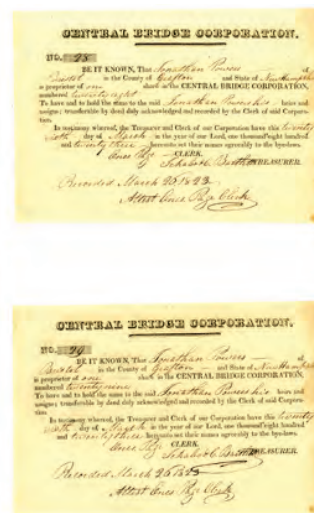 CENTRAL BRIDGE CORPORATION.
NO. 28
BE IT KNOWN, That Jonathan Powers of
Bristol in the County of Grafton and State of New Hampshire
is proprietor of one share in the CENTRAL BRIDGE CORPORATION,
numbered twenty eight
To have and to hold the same to the said Jonathan Powers his heirs and
assigns; transferable by deed duly acknowledged and recorded by the Clerk of said Corpora-
tion.
In testimony whereof, the Treasurer and Clerk of our Corporation have this twenty
sixth day of March in the year of our Lord, one thousand eight hundred
and twenty three hereunto set their names agreeably to the by-laws.
CLERK.
TREASURER.
Recorded March 26 1823
Attest Clerk
CENTRAL BRIDGE CORPORATION.
NO. 29
BE IT KNOWN, That Jonathan Powers of
Bristol in the County of Grafton and State of New Hampshire
is proprietor of one share in the CENTRAL BRIDGE CORPORATION,
numbered twenty nine
To have and to hold the same to the said Jonathan Powers his heirs and
assigns; transferable by deed duly acknowledged and recorded by the Clerk of said Corpora-
tion.
In testimony whereof, the Treasurer and Clerk of our Corporation have this twenty
sixth day of March in the year of our Lord, one thousand eight hundred
and twenty three hereunto set their names agreeably to the by-laws.
CLERK.
TREASURER.
Recorded March 26 1823
Attest Clerk